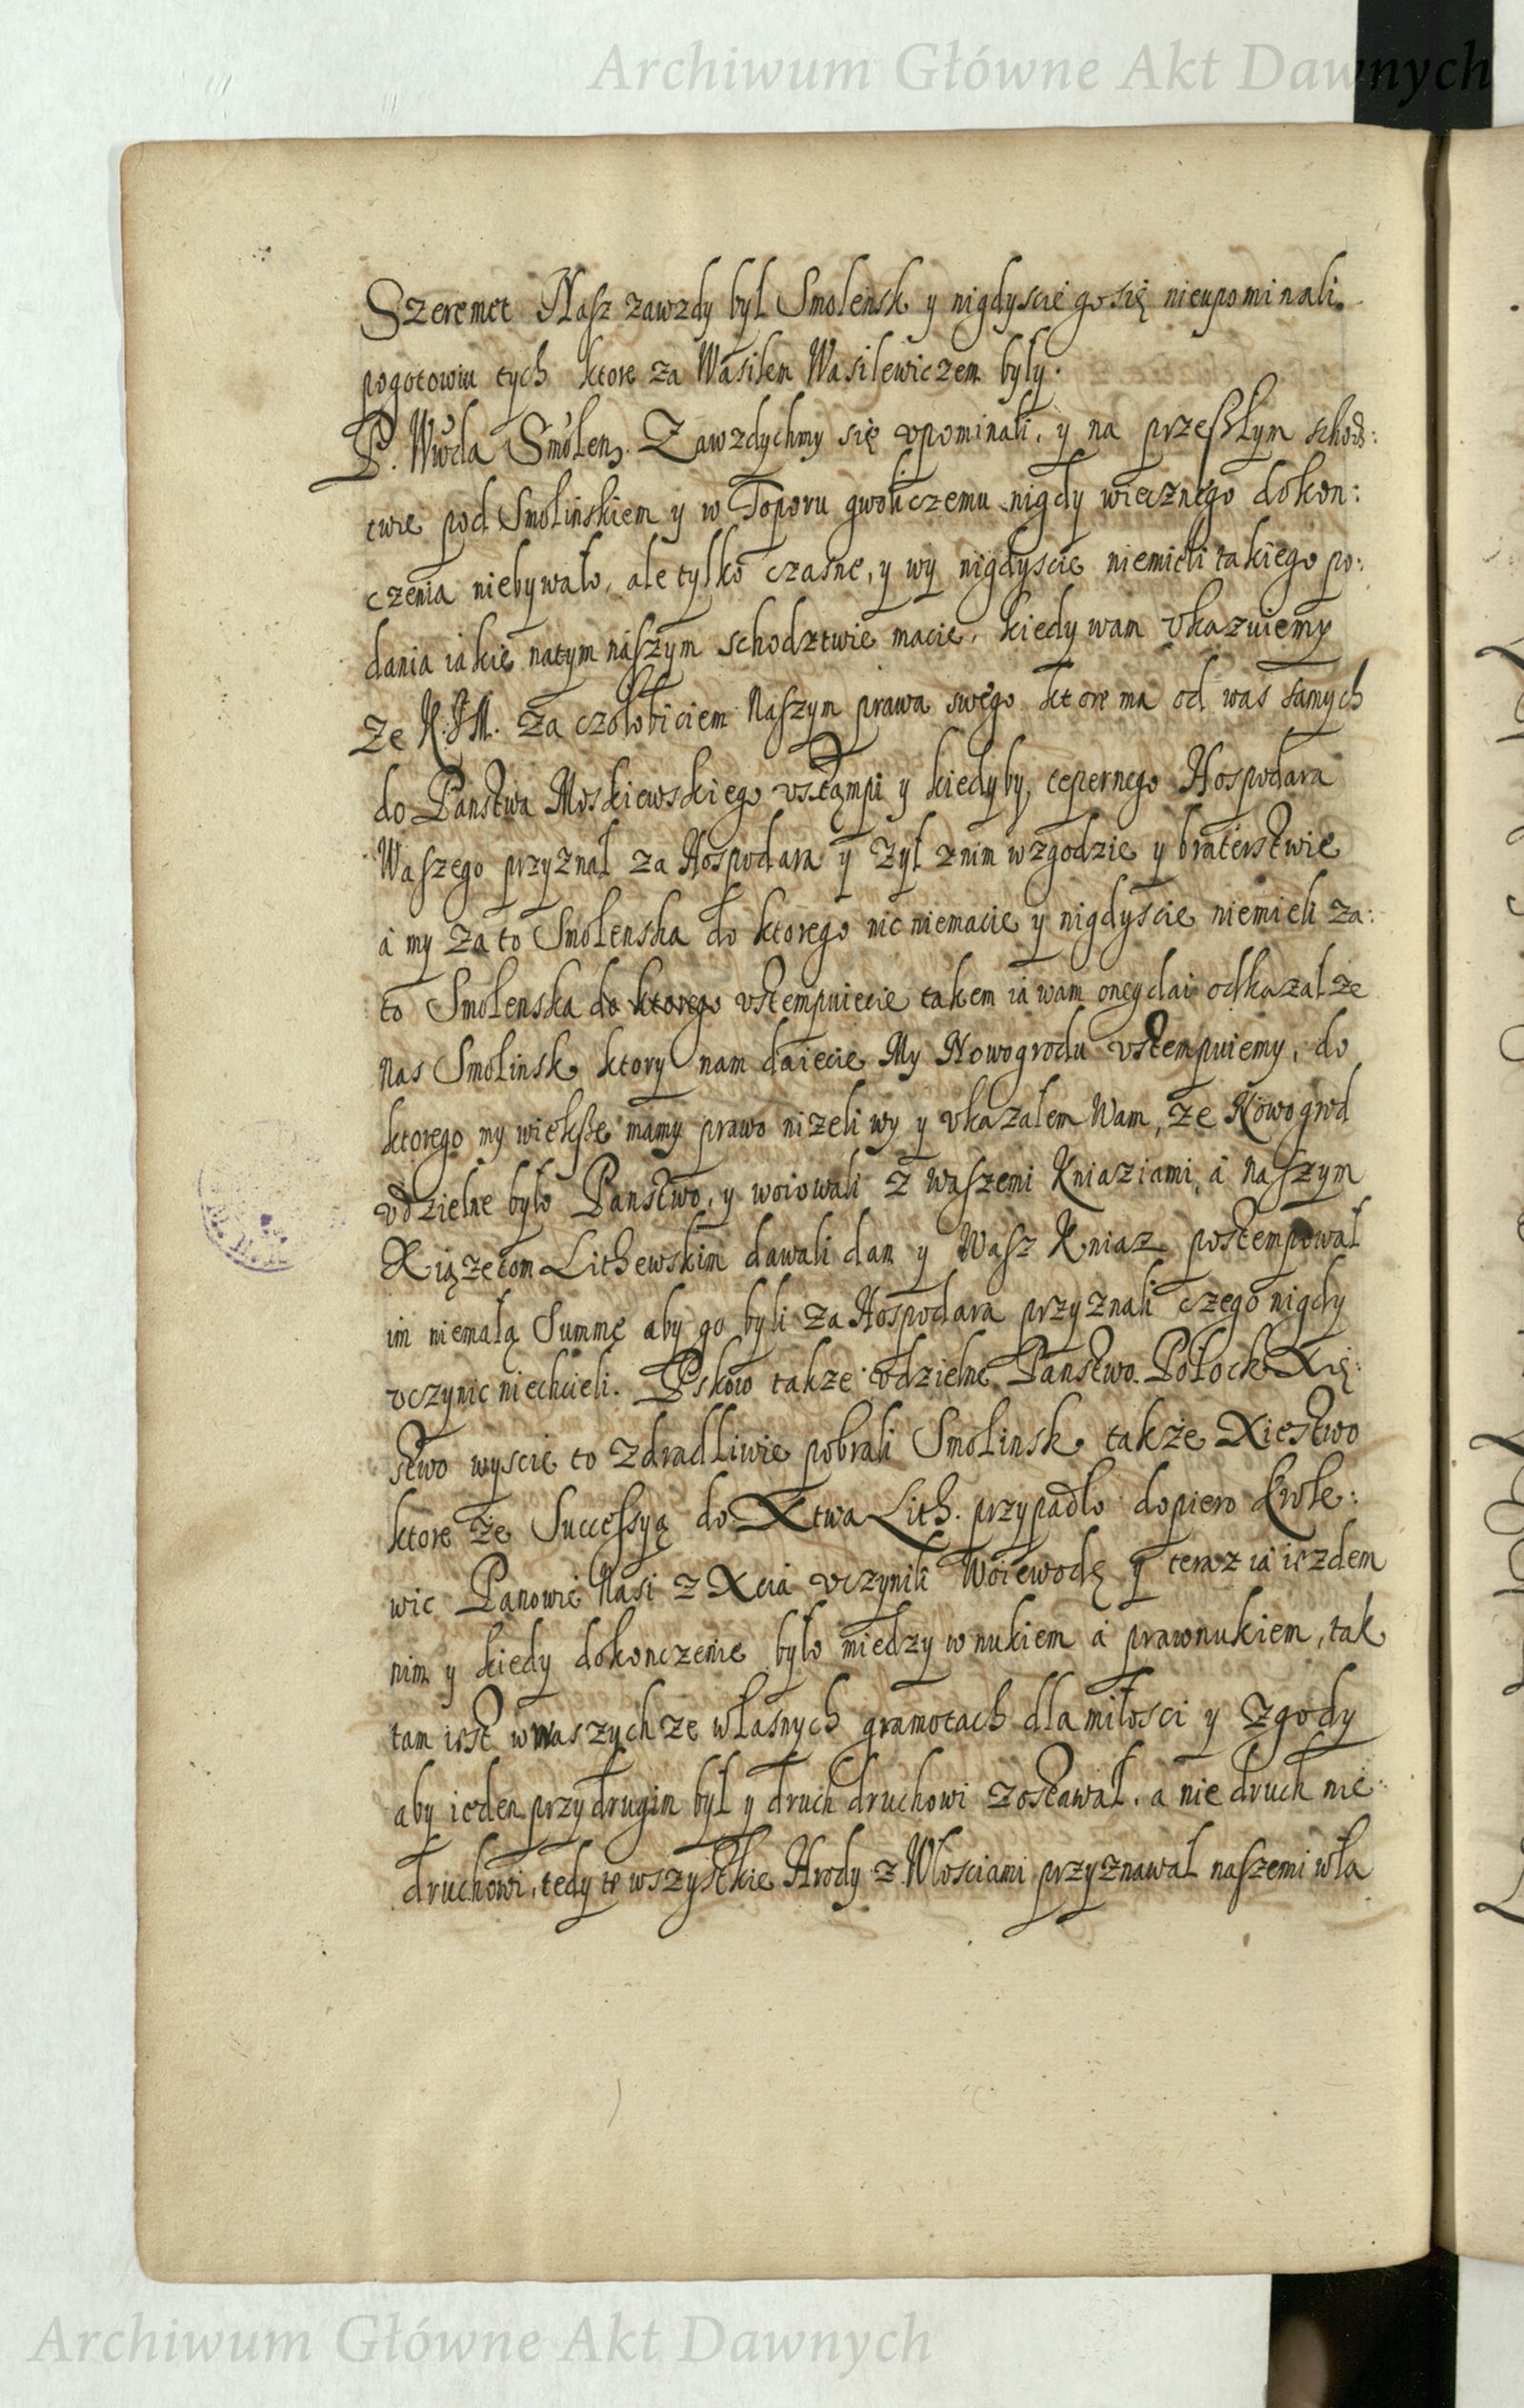 Archiwum Główne Akt Dawnych
Szeremet Nasz zawzdy był Smolensk y nigdyscie go się nieupominali
pogotowiu tych ktore za Wasilem Wasilewiczem były.
P. Wwda Smolens. Zawzdychmy się vpominali, y na przeszłym schodz:
twie pod Smolinskiem y w Toporu gwoli czemu nigdy wiecznego dokon:
czenia niebywało, ale tylko czasne, y wy nigdyscie niemieli takiego po:
dania iakie natym naszym schodztwie macie, kiedy wam vkazuiemy
że K.J.M. za czołobiciem Naszym prawa swego ktore ma od was samych
do Panstwa Moskiewskiego vstąmpi y kiedyby tepernego Hospodara
Waszego przyznał za Hospodara y żył znim w zgodzie y braterstwie
á my za to Smolenska do ktorego nic niemacie y nigdyscie niemieli za:
to Smolenska do ktorego vstempuiecie takem ia wam onegdai odkazał że
Nas Smolinsk ktory nam daiecie My Nowogrodu vstempuiemy, do
ktorego my wieksze mamy prawo niżeli wy y vkazałem Wam, że Nowogrod
vdzielne było Panstwo, y woiowali z waszemi Kniaziami, á Naszym
Xiążetom Lithewskim dawali dan y Wasz Kniaz postempował
im niemałą Summę aby go byli za Hospodara przyznali czego nigdy
vczynic niechcieli. Pskow takze vdzielne Panstwo. Połock Xię:
stwo wyscie to zdradliwie pobrali Smolinsk także Xiestwo
ktore że Successyą do Xtwa Lith. przypadło dopiero krole:
wic Panowie Nasi z Xcia vczynili Woiewodę y teraz ia iezdem
nim y kiedy dokonczenie było miedzy wnukiem á prawnukiem, tak
tam iest w waszych ze własnych gramotach dla miłosci y zgody
aby ieden przy drugim był y druch druchowi zostawał, a nie druch nie
druchowi, tedy te wszystkie Hrody z Włosciami przyznawał naszemi wła
Archiwum Główne Akt Dawnych